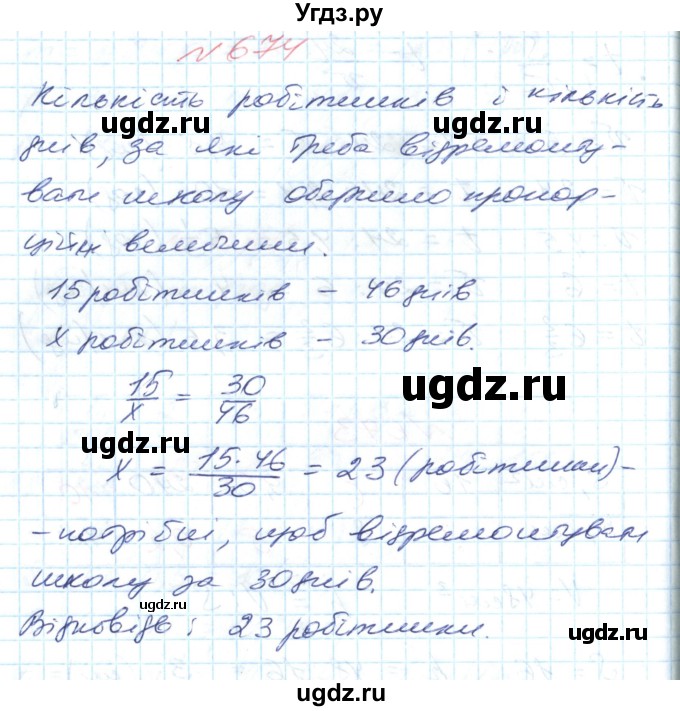 Угдз.ру
№ 674
Кількість робітників і кількість
днів, за які треба відремонту-
вати школу обернено пропор-
ційні величини.
15 робітників – 46 днів
x робітників – 30 днів.
15/x = 30/46
x = 15·46/30 = 23 (робітники) -
- потрібні, щоб відремонтувати
школу за 30 днів.
Відповідь: 23 робітники.
ugdz.ru
ugdz.ru
ugdz.ru
ugdz.ru
ugdz.ru
ugdz.ru
ugdz.ru
ugdz.ru
ugdz.ru